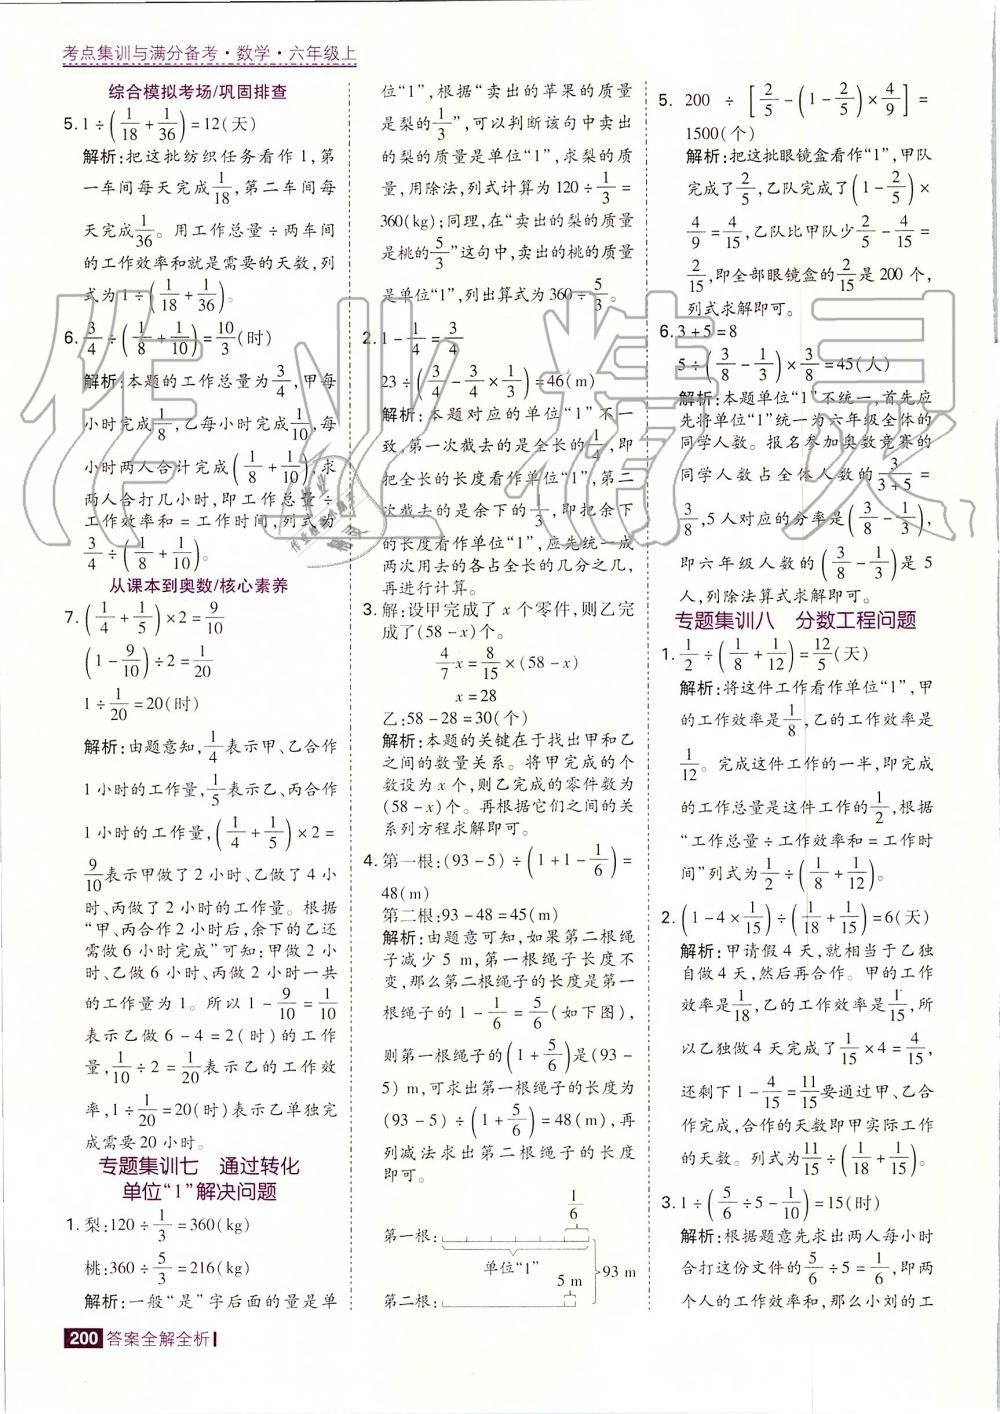 考点集训与满分备考·数学·六年级上
综合模拟考场/巩固排查
5. 1÷(1/18+1/36)=12(天)
解析:把这批纺织任务看作1,第
一车间每天完成1/18,第二车间每
天完成1/36。用工作总量÷两车间
的工作效率和就是需要的天数,列
式为1÷(1/18+1/36)。
6. 3/4÷(1/8+1/10)=10/3(时)
解析:本题的工作总量为3/4,甲每
小时完成1/8,乙每小时完成1/10,每
小时两人合计完成(1/8+1/10),求
两人合打几小时,即工作总量÷
工作效率和=工作时间,列式为
3/4÷(1/8+1/10)。
从课本到奥数/核心素养
7. (1/4+1/5)×2=9/10
(1-9/10)÷2=1/20
1÷1/20=20(时)
解析:由题意知,1/4表示甲、乙合作
1小时的工作量,1/5表示乙、丙合作
1小时的工作量,(1/4+1/5)×2=
9/10表示甲做了2小时、乙做了4小
时、丙做了2小时的工作量。根据
“甲、丙合作2小时后,余下的乙还
需做6小时完成”可知:甲做2小
时、乙做6小时、丙做2小时一共
的工作量为1。所以1-9/10=1/10
表示乙做6-4=2(时)的工作
量,1/10÷2=1/20表示乙的工作效
率,1÷1/20=20(时)表示乙单独完
成需要20小时。
专题集训七 通过转化
单位“1”解决问题
1. 梨:120÷1/3=360(kg)
桃:360÷5/3=216(kg)
解析:一般“是”字后面的量是单
位“1”,根据“卖出的苹果的质量
是梨的1/3”,可以判断该句中卖出
的梨的质量是单位“1”,求梨的质
量,用除法,列式计算为120÷1/3=
360(kg);同理,在“卖出的梨的质量
是桃的5/3”这句中,卖出的桃的质量
是单位“1”,列出算式为360÷5/3。
2. 1-1/4=3/4
23÷(3/4-3/4×1/3)=46(m)
解析:本题对应的单位“1”不一
致,第一次截去的是全长的1/4,即
把全长的长度看作单位“1”,第二
次截去的是余下的1/3,即把余下
的长度看作单位“1”,应先统一成
两次用去的各占全长的几分之几,
再进行计算。
3. 解:设甲完成了x个零件,则乙完
成了(58-x)个。
4/7x=8/15×(58-x)
x=28
乙:58-28=30(个)
解析:本题的关键在于找出甲和乙
之间的数量关系。将甲完成的个
数设为x个,则乙完成的零件数为
(58-x)个。再根据它们之间的关
系列方程求解即可。
4. 第一根:(93-5)÷(1+1-1/6)=
48(m)
第二根:93-48=45(m)
解析:由题意可知,如果第二根绳
子减少5 m,第一根绳子长度不
变,那么第二根绳子的长度是第一
根绳子的1-1/6=5/6(如下图),
则第一根绳子的(1+5/6)是(93-
5) m,可求出第一根绳子的长度为
(93-5)÷(1+5/6)=48(m),再
列减法求出第二根绳子的长度
即可。
1/6
第一根:
单位“1”
5 m
93 m
第二根:
5. 200÷[2/5-(1-2/5)×4/9]=
1500(个)
解析:把这批眼镜盒看作“1”,甲队
完成了2/5,乙队完成了(1-2/5)×
4/9=4/15,乙队比甲队少2/5-4/15=
2/15,即全部眼镜盒的2/15是200个,
列式求解即可。
6. 3+5=8
5÷(3/8-1/3)×3/8=45(人)
解析:本题单位“1”不统一,首先应
先将单位“1”统一为六年级全体的
同学人数。报名参加奥数竞赛的
同学人数占全体人数的3/(3+5)=
3/8,5人对应的分率是(3/8-1/3),
即六年级人数的(3/8-1/3)是5
人,列除法算式求解即可。
专题集训八 分数工程问题
1. 1/2÷(1/8+1/12)=12/5(天)
解析:将这件工作看作单位“1”,甲
的工作效率是1/8,乙的工作效率是
1/12。完成这件工作的一半,即完成
的工作总量是这件工作的1/2,根据
“工作总量÷工作效率和=工作时
间”列式为1/2÷(1/8+1/12)。
2. (1-4×1/15)÷(1/18+1/15)=6(天)
解析:甲请假4天,就相当于乙独
自做4天,然后再合作。甲的工作
效率是1/18,乙的工作效率是1/15,所
以乙独做4天完成了1/15×4=4/15,
还剩下1-4/15=11/15要通过甲、乙合
作完成,合作的天数即甲实际工作
的天数。列式为11/15÷(1/18+1/15)。
3. 1÷(5/6÷5-1/10)=15(时)
解析:根据题意先求出两人每小时
合打这份文件的5/6÷5=1/6,即两
个人的工作效率和,那么小刘的工
200 答案全解全析
作业精灵